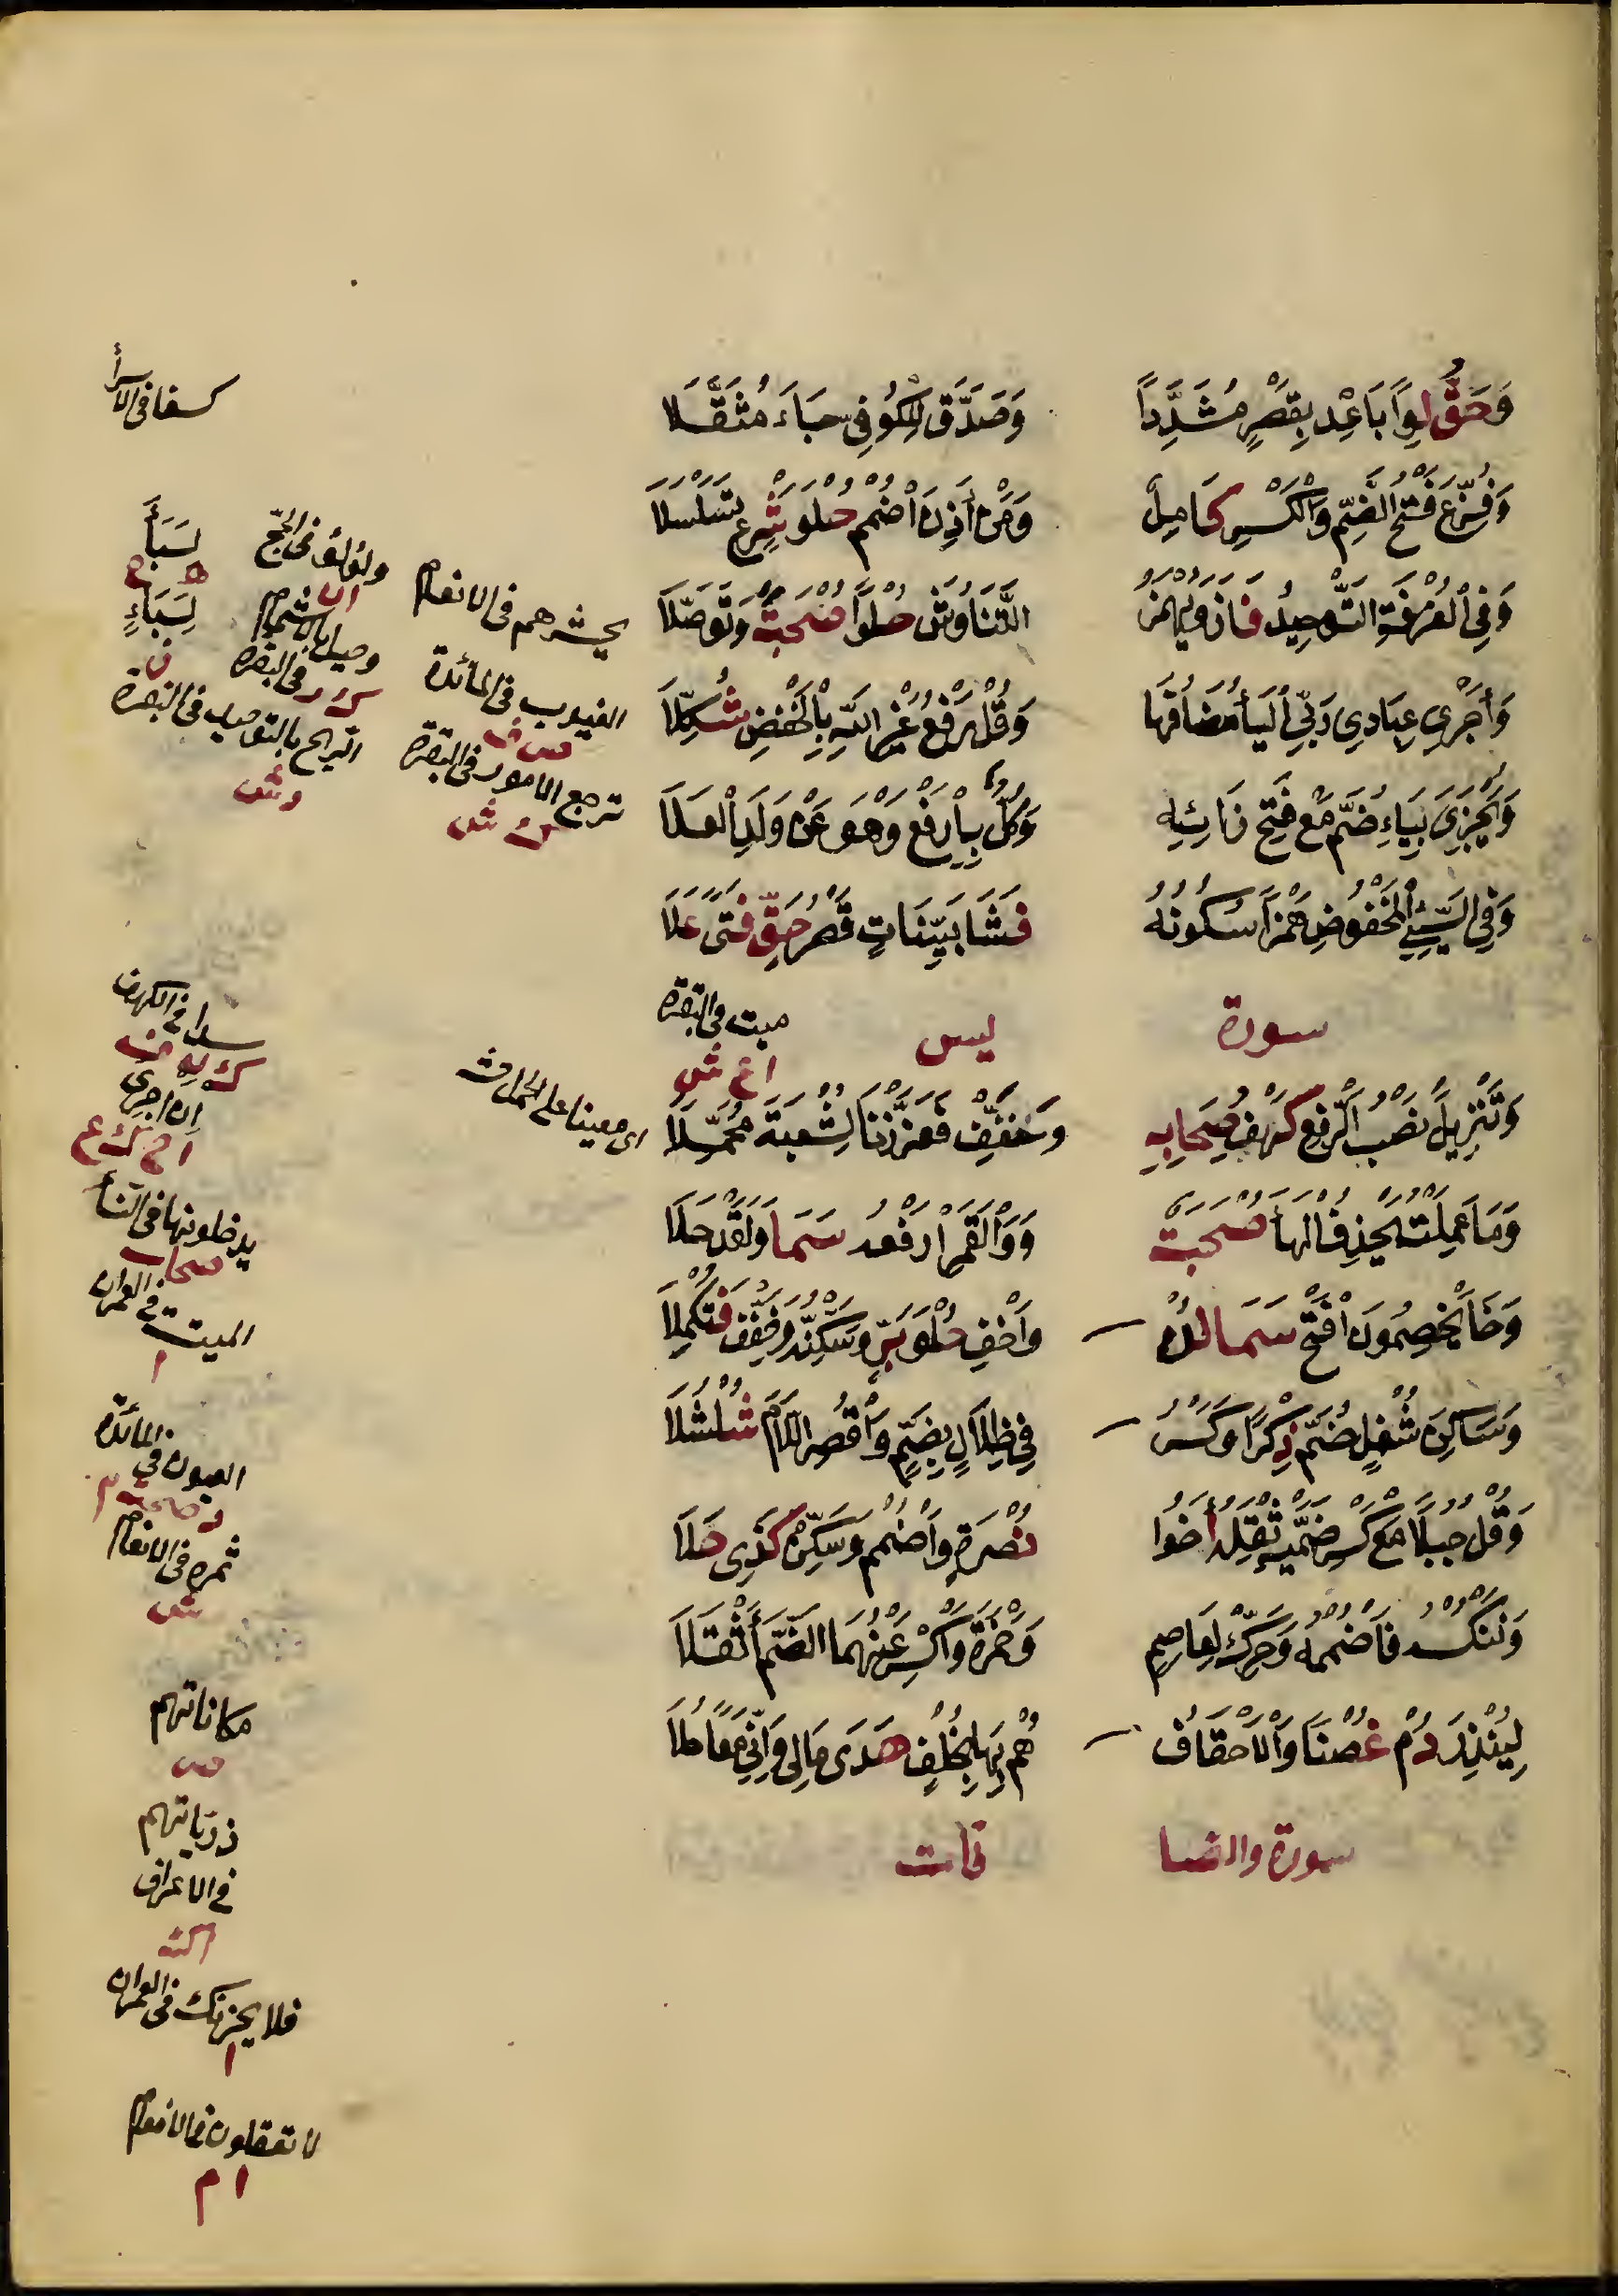 وَحَقُّ لِوَا بَاعِدْ بِقَصْرٍ مُشَدِّداً وَصَدَّقَ لِلْكُوفِي جَاءَ مُثَقَّلَا
وَفُزِّعَ فَتْحُ الضَّمِّ وَالْكَسْرِ كَامِلٌ وَمَنْ أَذِنَ اضْمُمْ حُلْوَ شَرْعٍ تَسَلْسَلَا
وَفِي الْغُرْفَةِ التَّوْحِيدُ فَازَ وَيُهْمَزُ التَّنَاوُشُ حُلْواً صُحْبَةً وَتَوَصُّلَا
وَأَجْرِي عِبَادِي رَبِّيَ الْيَا مُضَافُهَا وَقُلْ رَفْعُ غَيْرُ اللَّهِ بِالْخَفْضِ شُكِّلَا
وَيُجْزَى بِيَاءٍ ضُمَّ مَعْ فَتْحِ زَائِهِ وَكُلَّ بِهِ ارْفَعْ وَهْوَ عَنْ وَلَدِ الْعَلَا
وَفِي السَّيِّئِ الْمَخْفُوضِ هَمْزاً سُكُونُهُ فَشَا بَيِّنَاتٍ قَصْرُ حَقٍّ فَتًى عَلَا
سورة يس
وَتَنْزِيلُ نَصْبُ الرَّفْعِ كَهْفُ صِحَابِهِ وَخَفِّفْ فَعَزَّزْنَا لِشُعْبَةَ مُحْمِلَا
وَمَا عَمِلَتْهُ يَحْذِفُ الْهَا صُحْبَةٌ وَوَالْقَمَرُ ارْفَعْهُ سَمَا وَلَقَدْ حَلَا
وَخَا يَخْصِمُونَ افْتَحْ سَمَا لُذْ وَأَخْفِ حُلْوَ بَرٍّ وَسَكِّنْهُ وَخَفِّفْ فَتُكْمِلَا
وَسَاكِنَ شُغْلٍ ضُمَّ ذِكْراً وَكَسْرُ فِي ظِلَالٍ بِضَمٍّ وَاقْصُرِ اللَّامَ شُلْشُلَا
وَقُلْ جُبُلًا مَعْ كَسْرِ ضَمَّيْهِ ثِقْلُهُ أَخُو نُصْرَةٍ وَاضْمُمْ وَسَكِّنْ كَذِي حَلَا
وَنَنْكُسْهُ فَاضْمُمْهُ وَحَرِّكْ لِعَاصِمٍ وَحَمْزَةَ وَاكْسِرْ عَنْهُمَا الضَّمَّ أَثْقَلَا
لِيُنْذِرَ دُمْ غُصْناً وَالْاحْقَافُ هُمْ بِهَا بِخُلْفٍ هَدَى مَالِي وَإِنِّي مَعًا حُلَا
سورة والصا فات
كسفا فى الاسرأ
لسَبَأَ
ه ح
لِسَبَاءٍ
ولؤلؤ فى الحج
ان
وحيل بالاشمام
ك ر فى البقرة
الريح بالتوحيد فى البقرة
وش
يحشرهم فى الانعام
الغيوب فى المائدة
ترجع الامور فى البقرة
ك ش
ميت فى البقرة
اى معينا على الحمل
سدا فى الكهف
ان اجرى
يدخلونها فى النسأ
الميت فى العمران
ا
العيون فى المائدة
ثمره فى الانعام
ش
مكاناتهم
ذرياتهم
فى الاعراف
فلا يحزنك فى العمران
ا
لا تعقلون فى الانعام
ا م